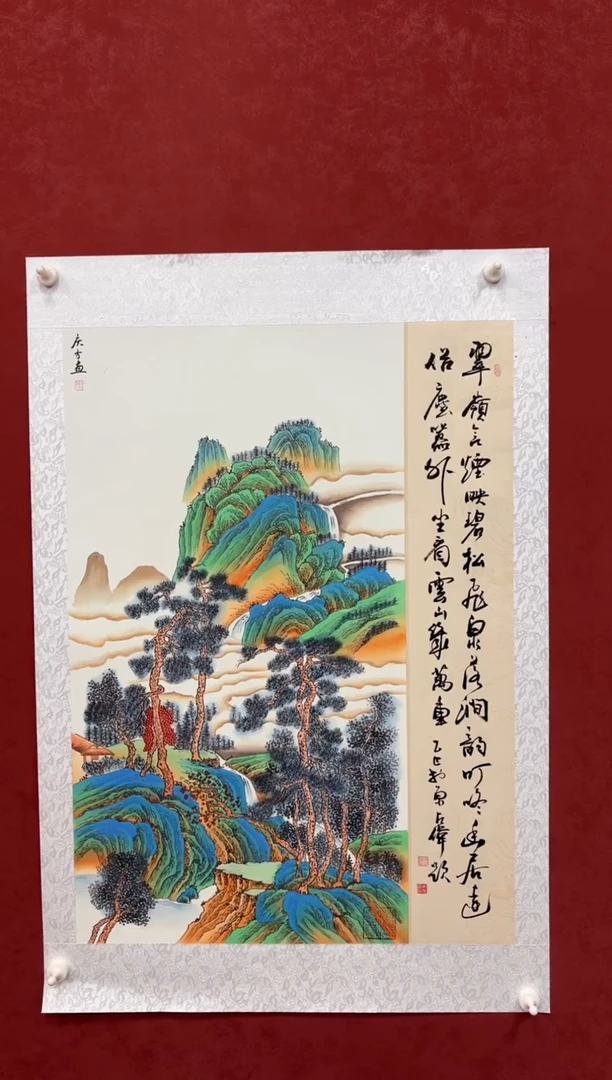 翠嶺含煙映碧松飛泉落澗韻叮咚幽居遠
俗塵囂外坐看雲山幾萬重乙巳初夏占偉題
慶方畫